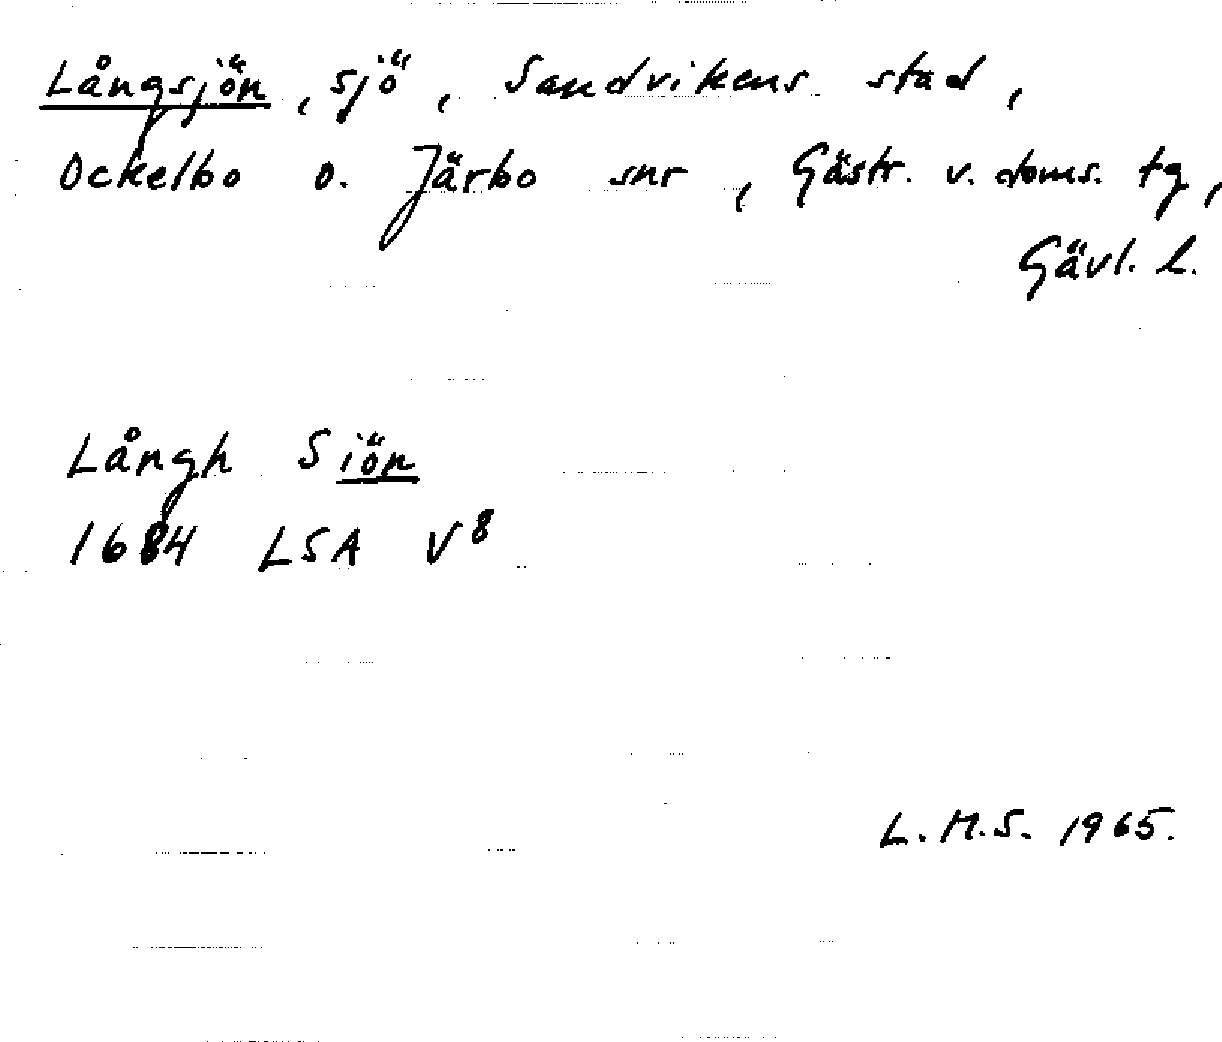 Långsjön, sjö, Sandvikens stad,
Ockelbo o. Järbo snr, Gästr. v. doms. tg,
Gävl. l.
Långh Siön
1684 LSA V⁸
L.M.S. 1965.